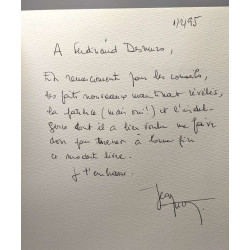 1/2/95
A Ferdinand Desmurs,
En remerciement pour les conseils,
les faits nouveaux maintenant révélés,
la patience (mais oui !) et l'indul-
gence dont il a bien voulu me faire
don pour mener à bonne fin
ce modeste livre.
Je t'embrasse
Jean